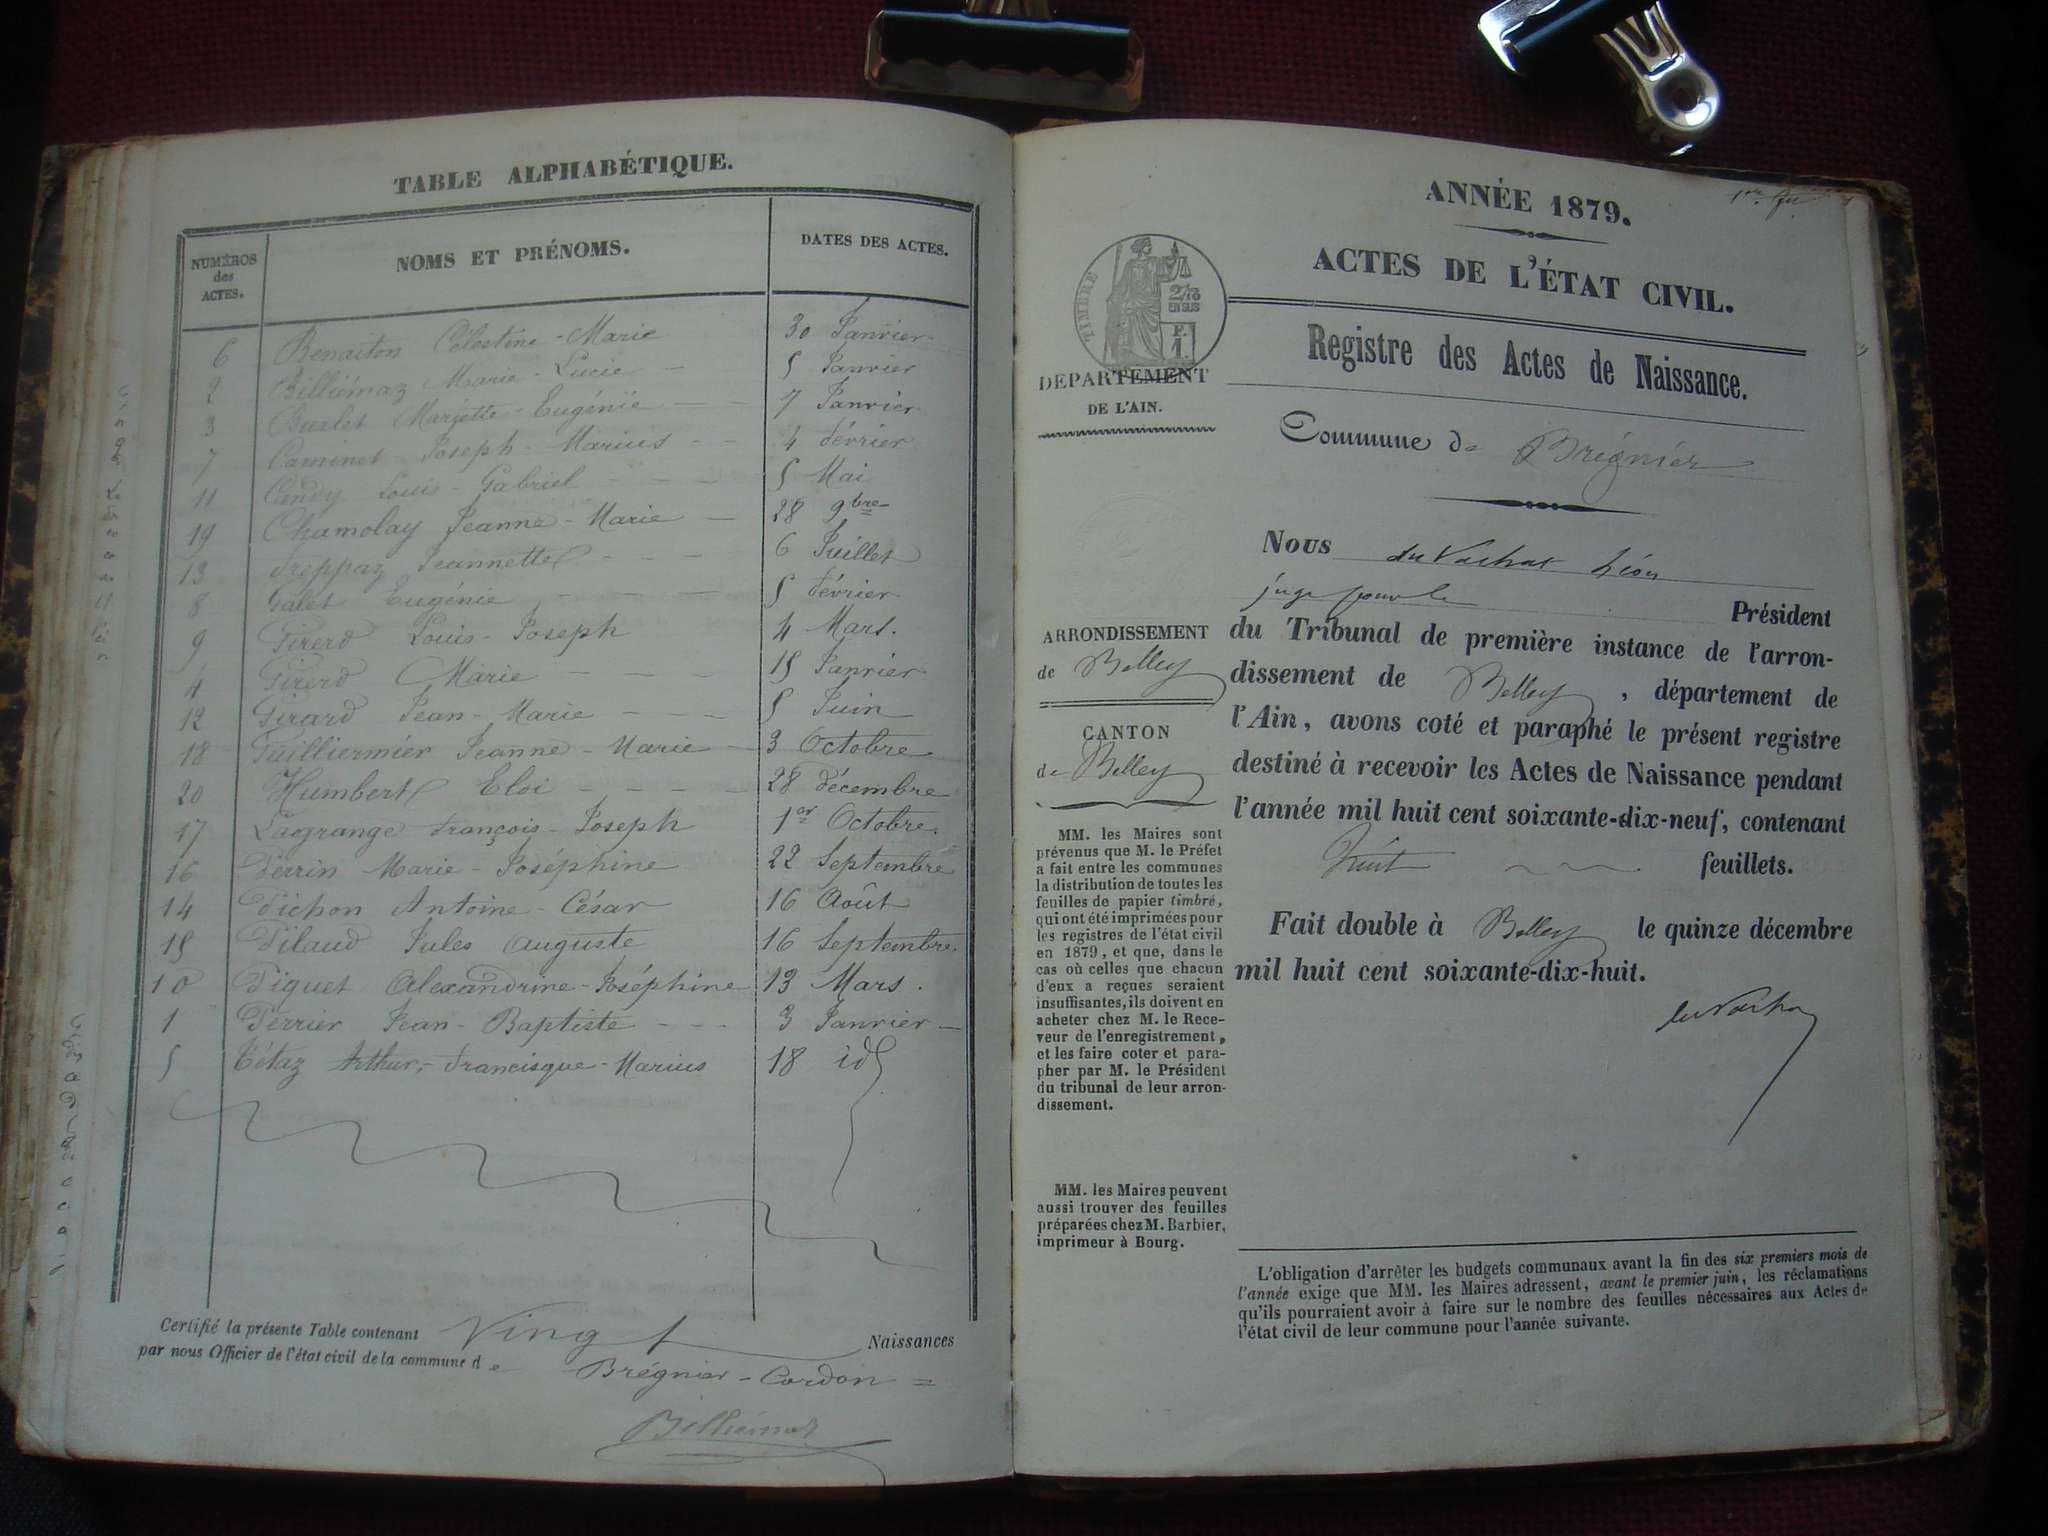 TABLE ALPHABÉTIQUE.
NUMÉROS des ACTES. NOMS ET PRÉNOMS. DATES DES ACTES.
6 Benaiton Célestine - Marie 30 Janvier
2 Billiémaz Marie - Lucie - 5 Janvier
3 Buzlet Mariette - Eugénie - - 7 Janvier
7 Caminet Joseph - Marius - - 4 Février
11 Candy Louis - Gabriel - - - 5 Mai
19 Chamolay Jeanne - Marie - 28 9bre
13 Freppaz Jeannette - - - 6 Juillet
8 Galet Eugénie - - - - 5 Février
9 Girerd Louis - Joseph 4 Mars.
4 Girerd Marie - - - 15 Janvier
12 Girard Jean - Marie - - - 5 Juin
18 Guilliermier Jeanne - Marie - 3 Octobre
20 Humbert Eloi - - - - 28 Décembre
17 Lagrange François - Joseph 1er Octobre.
16 Perrin Marie - Joséphine 22 Septembre
14 Pichon Antoine - César 16 Août
15 Pilaud Jules Auguste 16 Septembre.
10 Piquet Alexandrine - Joséphine 13 Mars.
1 Perrier Jean - Baptiste - - - 3 Janvier -
5 Tétaz Arthur, - Francisque - Marius 18 id
Certifié la présente Table contenant Vingt Naissances
par nous Officier de l'état civil de la commune de Brégnier - Cordon =
Billiémaz
1er fu
ANNÉE 1879.
ACTES DE L'ÉTAT CIVIL.
TIMBRE
2/10
EN SUS
F.
1.
Registre des Actes de Naissance.
DÉPARTEMENT
DE L'AIN.
Commune de Brégnier
Nous du Vachat Léon
juge pour le Président
du Tribunal de première instance de l'arron-
dissement de Belley, département de
l'Ain, avons coté et paraphé le présent registre
destiné à recevoir les Actes de Naissance pendant
l'année mil huit cent soixante-dix-neuf, contenant
huit feuillets.
Fait double à Belley le quinze décembre
mil huit cent soixante-dix-huit.
du Vachat
ARRONDISSEMENT
de Belley
CANTON
de Belley
MM. les Maires sont
prévenus que M. le Préfet
a fait entre les communes
la distribution de toutes les
feuilles de papier timbré,
qui ont été imprimées pour
les registres de l'état civil
en 1879, et que, dans le
cas où celles que chacun
d'eux a reçues seraient
insuffisantes, ils doivent en
acheter chez M. le Rece-
veur de l'enregistrement,
et les faire coter et para-
pher par M. le Président
du tribunal de leur arron-
dissement.
MM. les Maires peuvent
aussi trouver des feuilles
préparées chez M. Barbier,
imprimeur à Bourg.
L'obligation d'arrêter les budgets communaux avant la fin des six premiers mois de
l'année exige que MM. les Maires adressent, avant le premier juin, les réclamations
qu'ils pourraient avoir à faire sur le nombre des feuilles nécessaires aux Actes de
l'état civil de leur commune pour l'année suivante.